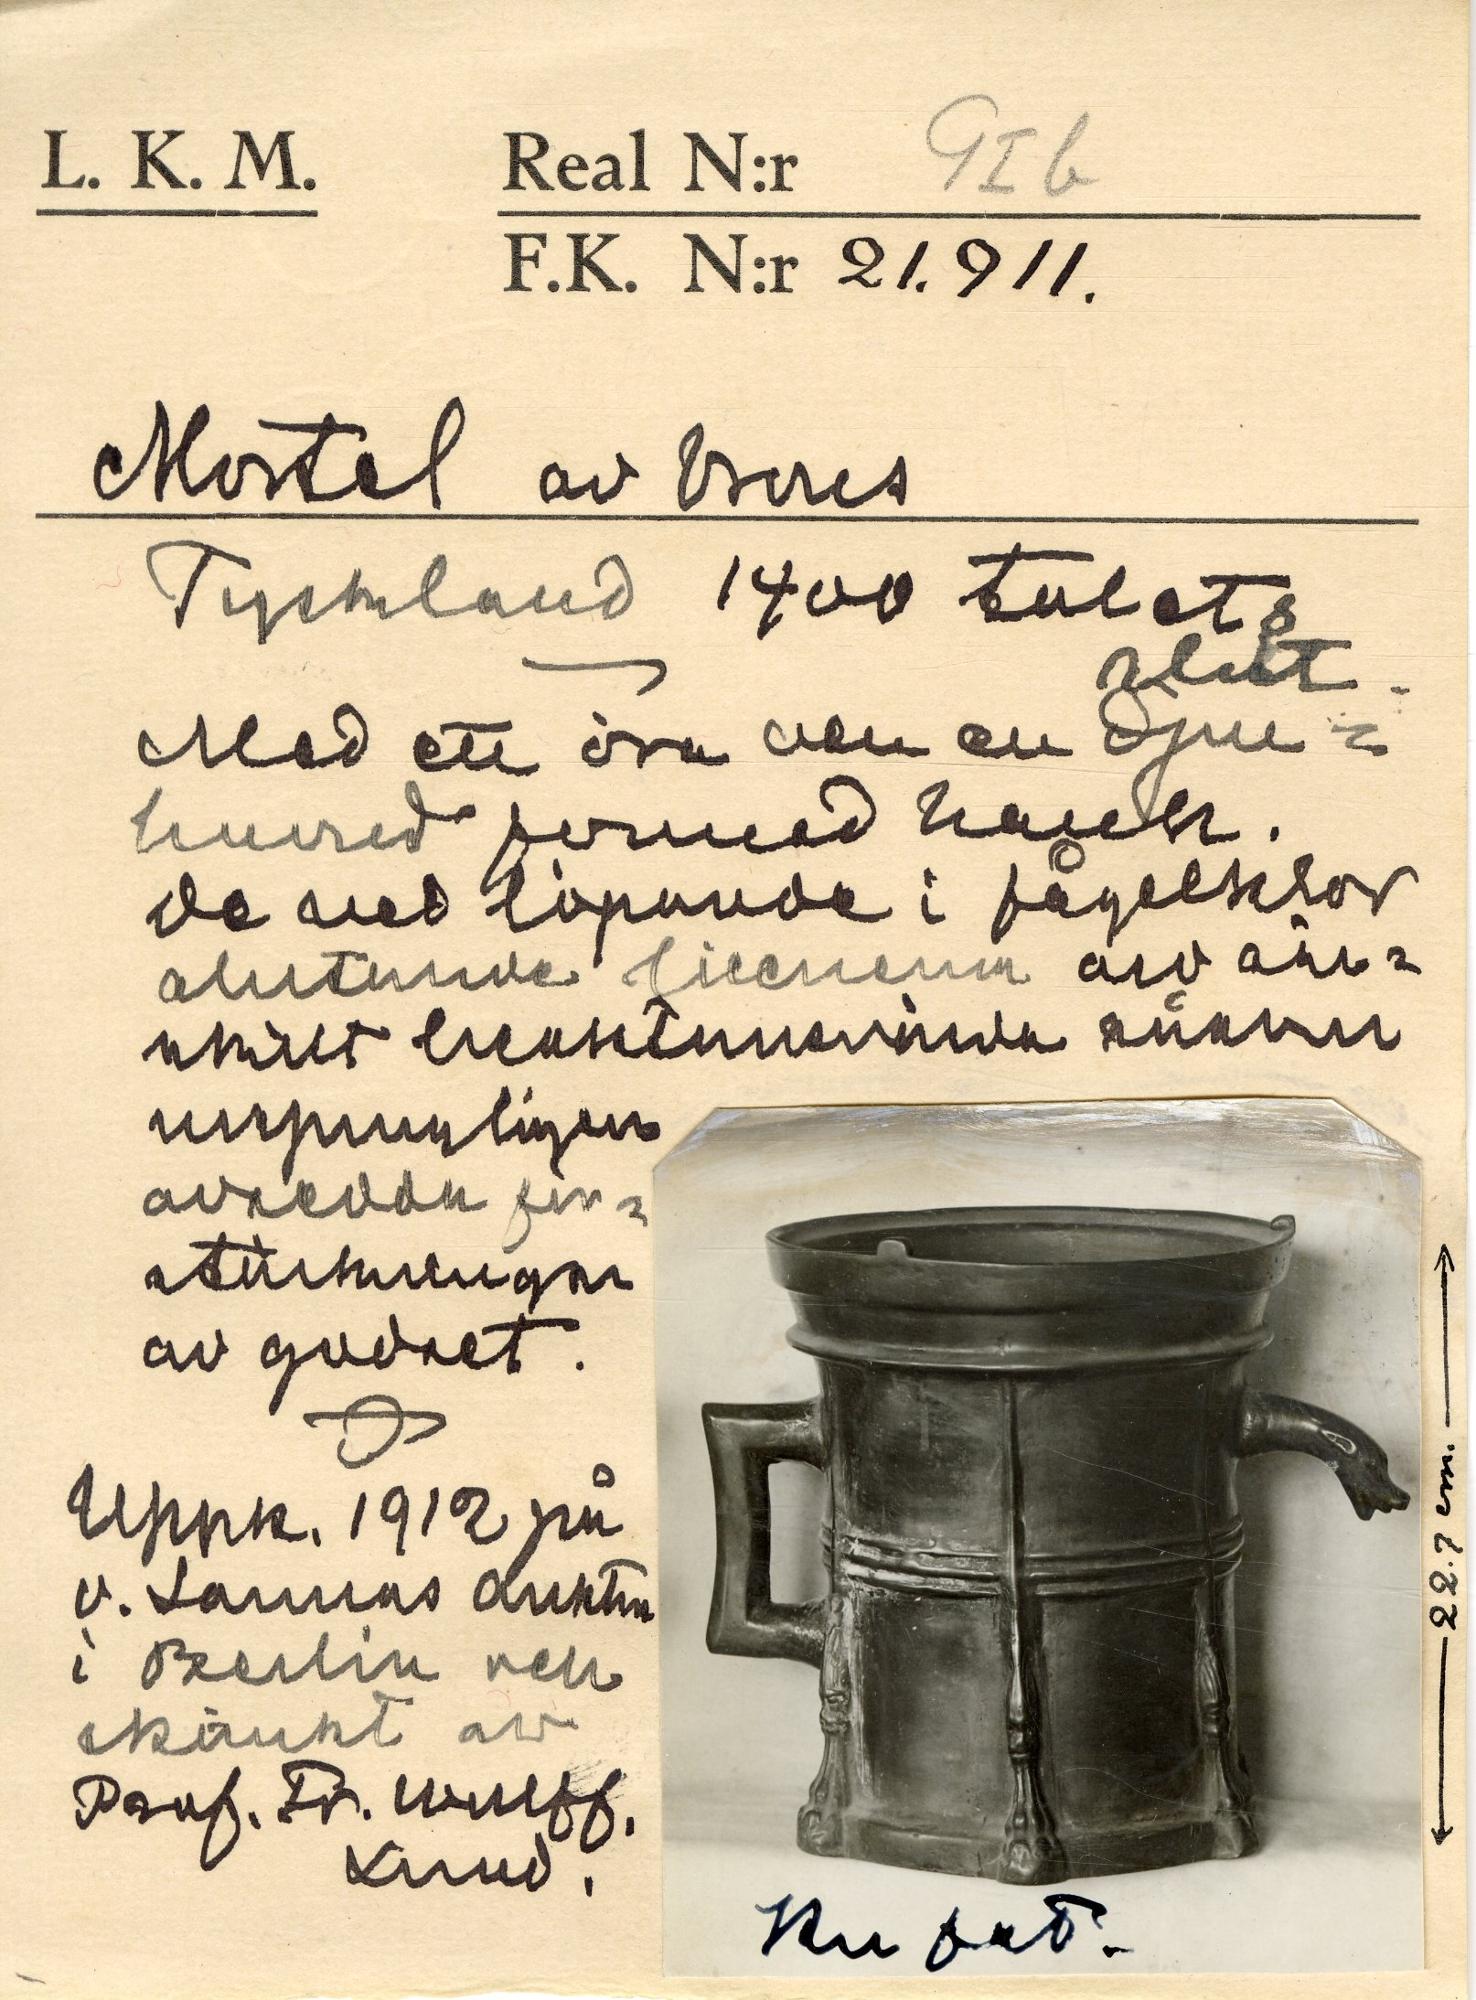 L. K. M. Real N:r 9Ib
F.K. N:r 21.911.
Mortel av brons
Tyskland 1400 talets
slut.
Med ett öra och en djur=
huvud formad handt.
De ned löpande i fågelklor
slutande lisenerna av sär=
skilt beaktansvärda såsom
ursprungligen
avsedda för=
stärkningar
av godset.
Uppk. 1912 på
v. Lannas auktion
i Berlin och
skänkt av
Prof. Fr. Wulff.
Lund.
22.7 cm.